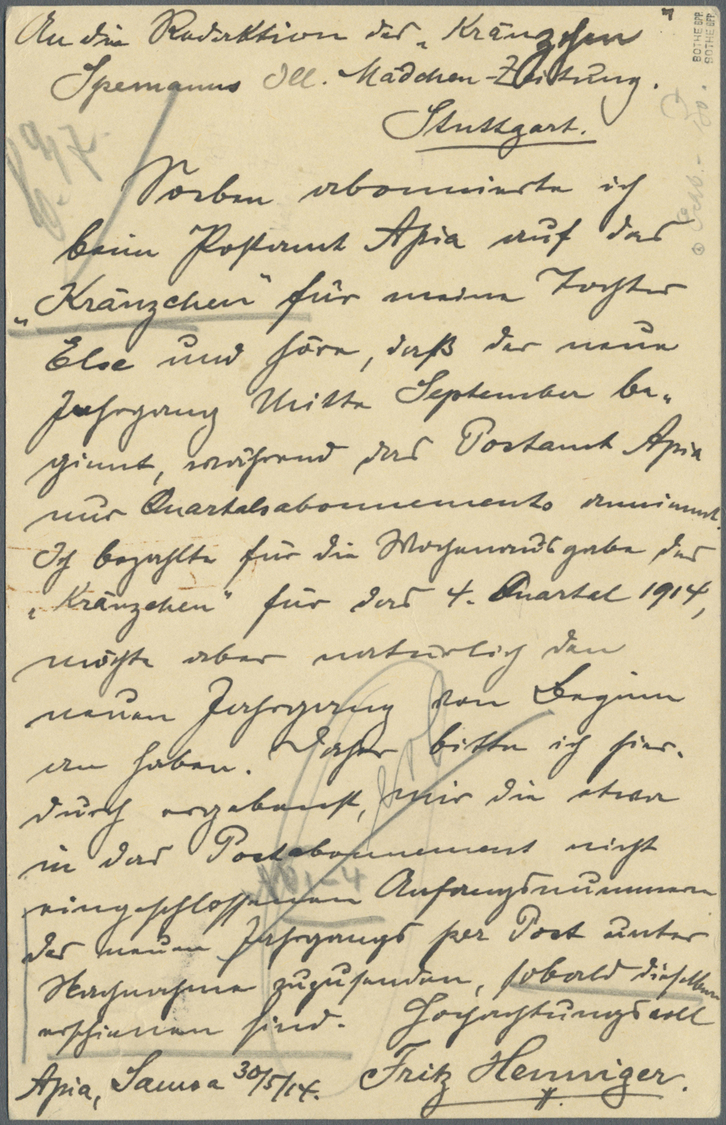 An die Redaktion des „Kränzchen"
Spemanns Ill. Mädchen-Zeitung.
Stuttgart.
Soeben abonnierte ich
beim Postamt Apia auf das
„Kränzchen" für meine Tochter
Else und höre, daß der neue
Jahrgang Mitte September be-
ginnt, während das Postamt Apia
nur Quartalsabonnements annimmt.
Ich bezahlte für die Wochenausgabe des
„Kränzchen" für das 4. Quartal 1914,
möchte aber natürlich den
neuen Jahrgang von Beginn
an haben. Daher bitte ich hier-
durch ergebenst, mir die etwa
in das Postabonnement nicht
eingeschlossenen Anfangsnummern
des neuen Jahrgangs per Post unter
Nachnahme zuzusenden, sobald dieselben
erschienen sind. Hochachtungsvoll
Apia, Samoa 30/5/14. Fritz Henniger.
BOTHE BPP.
BOTHE BPP.